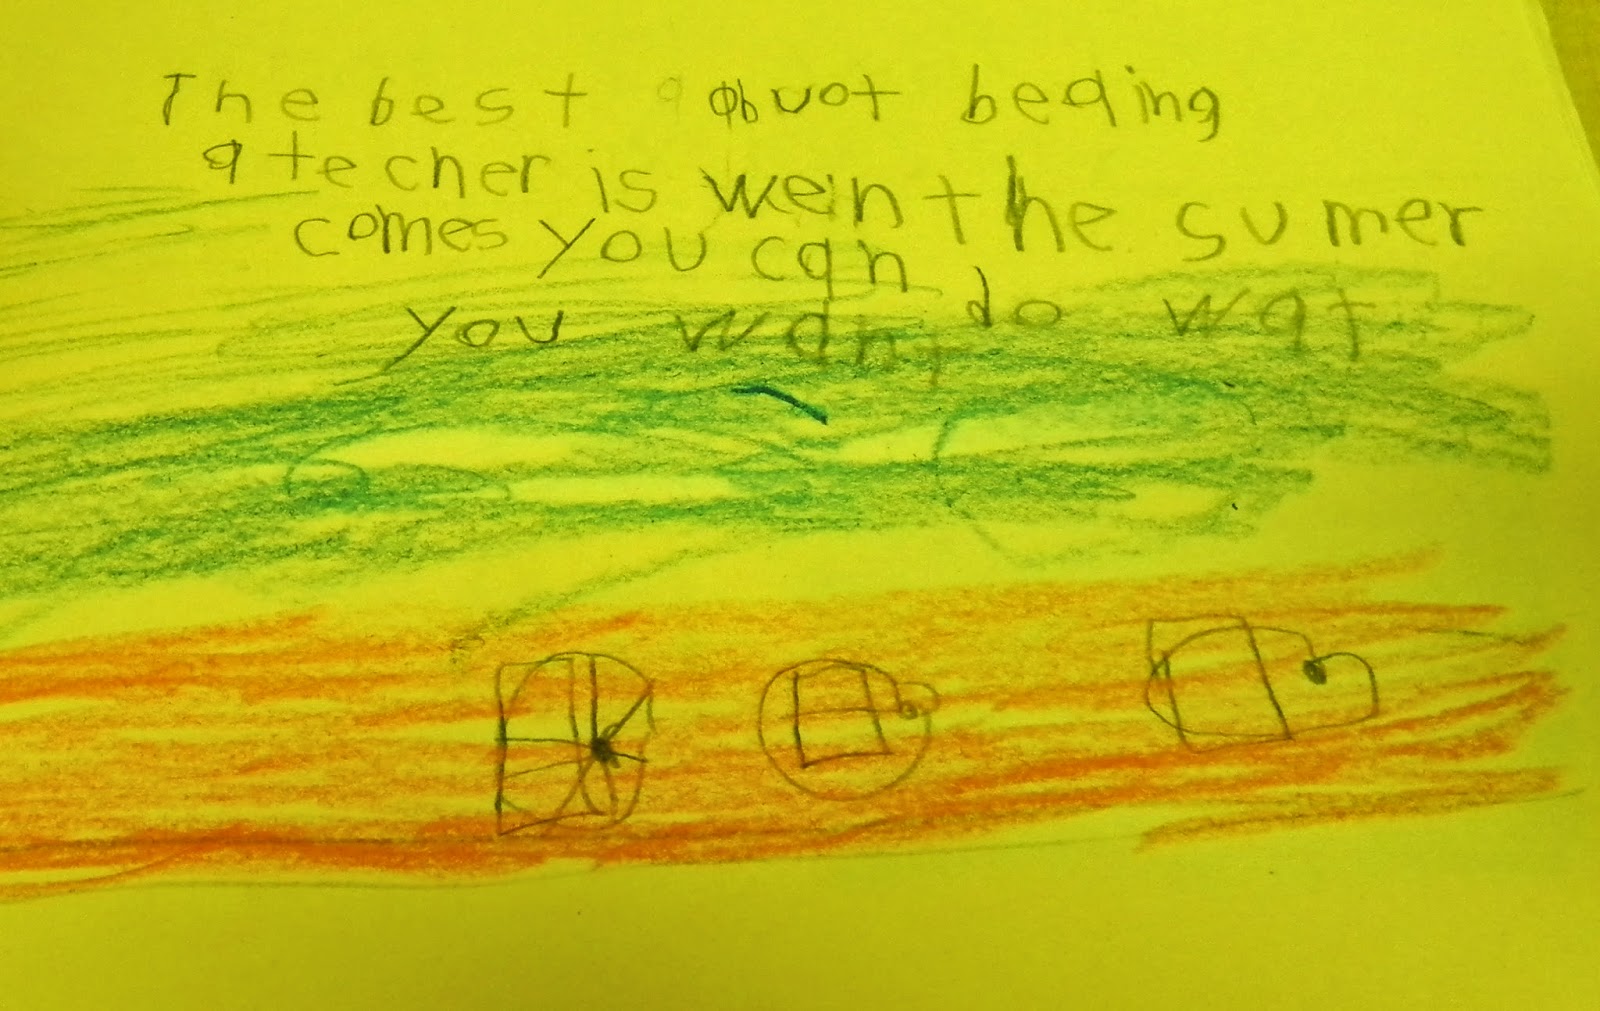 The best abuot beaing
a techer is wen the sumer
comes you can do wat
you want